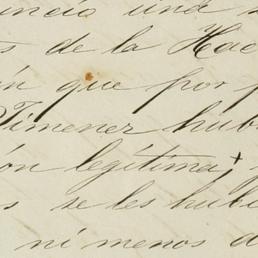 uncio una
de la Hac
que por p
Timenez hub
ón legítima,
s se les hubi
ni menos d